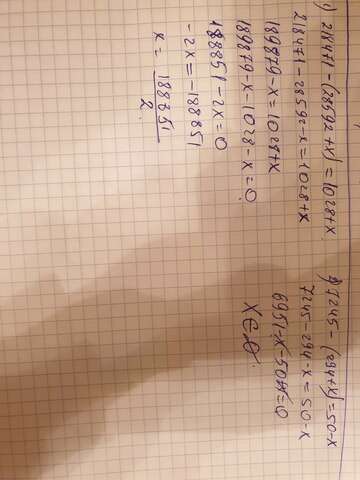 1) 218471-(28592+x)=1028+x
218471-28592-x=1028+x
189879-x=1028+x
189879-x-1028-x=0
188851-2x=0
-2x=-188851
x=188851/2
2) 7245-(294+x)=50-x
7245-294-x=50-x
6951-x-50+x=0
x∈∅